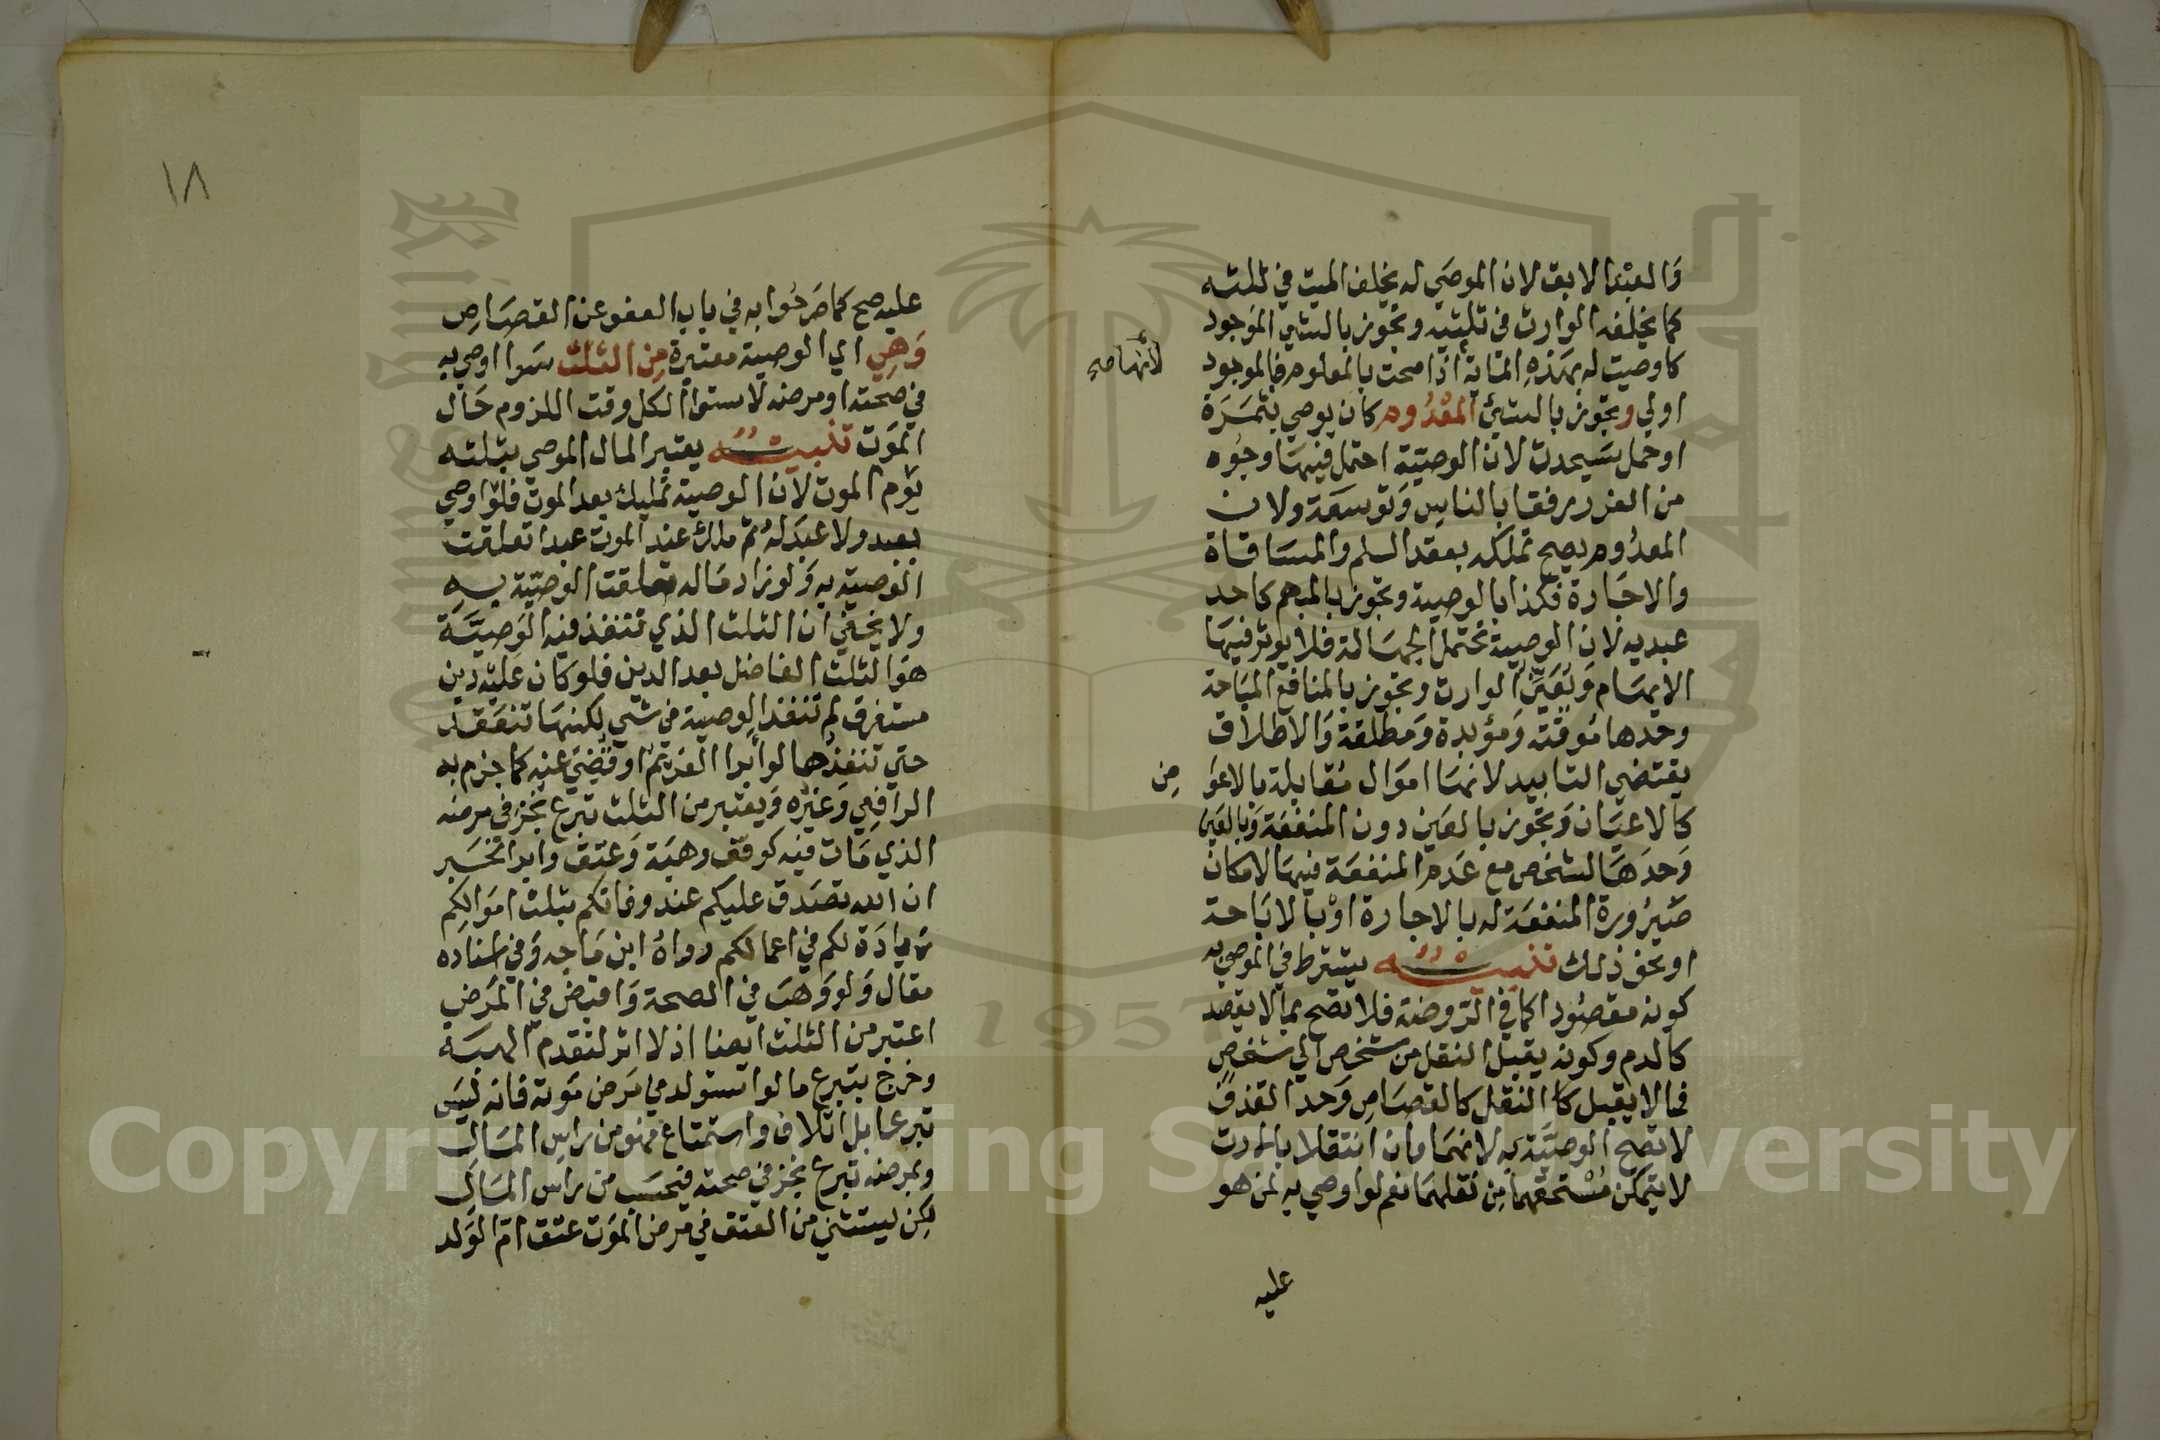 والعبد الابق لان الموصي له يخلف الميت في ثلثه
كما يخلفه الوارث في ثلثيه وتجوز بالشي الموجود
كاوصيت له بهذه المائة اذا صحت بالمعلوم فبالموجود
لأنها صح
اولي وتجوز بالشئ المعدوم كان يوصي بثمرة
او حمل سيحدث لان الوصية احتمل فيها وجوه
من الغرر رفقا بالناس وتوسعة ولان
المعدوم يصح تملكه بعقد السلم والمساقاة
والاجارة فكذا بالوصية وتجوز بالمبهم كاحد
عبديه لان الوصية تحتمل الجهالة فلا يوثر فيها
الابهام ويعين الوارث وتجوز بالمنافع المباحة
وحدها موقتة ومؤبدة ومطلقة والاطلاق
يقتضي التابيد لانها اموال مقابلة بالاعوا
ض
كالاعيان وتجوز بالعين دون المنفعة وبالعين
وحدها لشخص مع عدم المنفعة فيها لامكان
صيرورة المنفعة له بالاجارة او بالاباحة
او نحو ذلك تنبيه يشترط في الموصي به
كونه مقصودا كما في الروضة فلا تصح بما لا يقصد
كالدم وكونه يقبل النقل من شخص الي شخص
فما لا يقبل النقل كالقصاص وحد القذف
لا تصح الوصية به لانهما وان انتقلا بالارث
لا يتمكن مستحقهما من نقلهما نعم لو اوصي به لمن هو
عليه
١٨
عليه صح كما صرحوا به في باب العفو عن القصاص
وهي اي الوصية معتبرة من الثلث سوا اوصي به
في صحته او مرضه لاستوا الكل وقت اللزوم حال
الموت تنبيه يعتبر المال الموصي بثلثه
يوم الموت لان الوصية تمليك بعد الموت فلو اوصي
بعبد ولا عبد له ثم ملك عند الموت عبدا تعلقت
الوصية به ولو زاد ماله تعلقت الوصية به
ولا يخفي ان الثلث الذي تنفذ فيه الوصية
هو الثلث الفاضل بعد الدين فلو كان عليه دين
مستغرق لم تنفذ الوصية في شي لكنها تنعقد
حتي تنفذها لو ابرا الغريم او قضي عنه كما جزم به
الرافعي وغيره ويعتبر من الثلث تبرع نجز في مرضه
الذي مات فيه كوقف وهبة وعتق وابرا لخبر
ان الله تصدق عليكم عند وفاتكم بثلث اموالكم
زيادة لكم في اعمالكم رواه ابن ماجه وفي اسناده
مقال ولو وهب في الصحة واقبض في المرض
اعتبر من الثلث ايضا اذ لا اثر لتقدم الهبة
وخرج بتبرع ما لو استولد في مرض موته فانه ليس
تبرعا بل اتلاف واستمتاع فهو من راس المال
وبمرضه تبرع نجز في صحته فيحسب من راس المال
لكن يستثني من العتق في مرض الموت عتق ام الولد